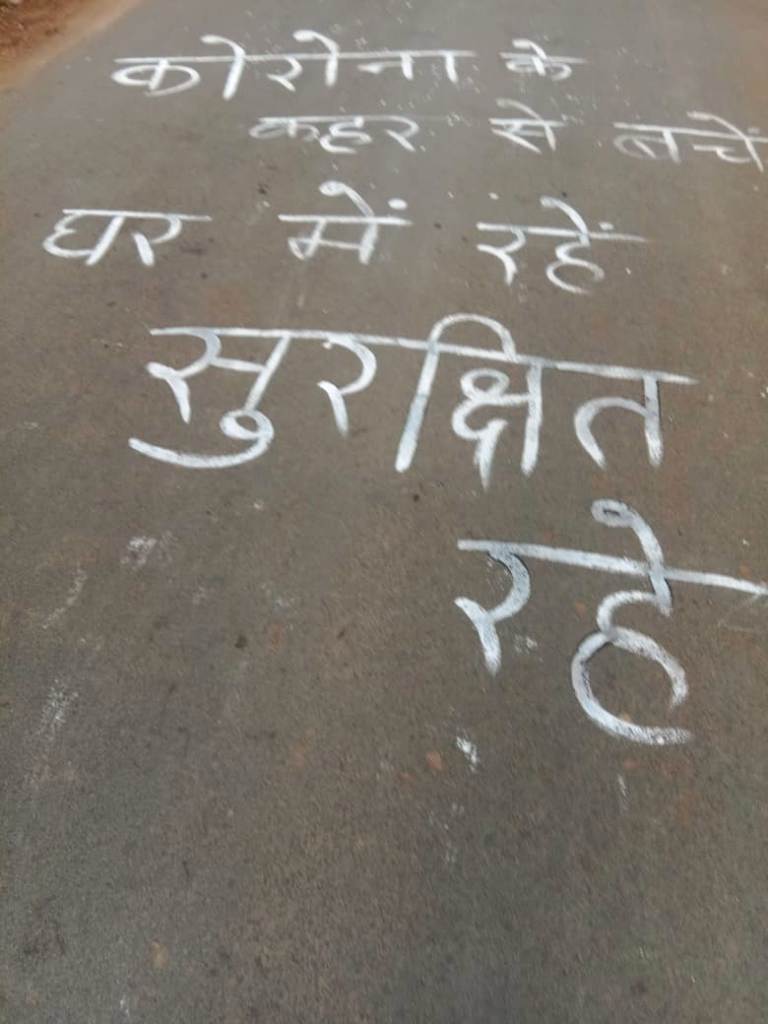 कोरोना के
कहर से बचें
घर में रहें
सुरक्षित
रहे